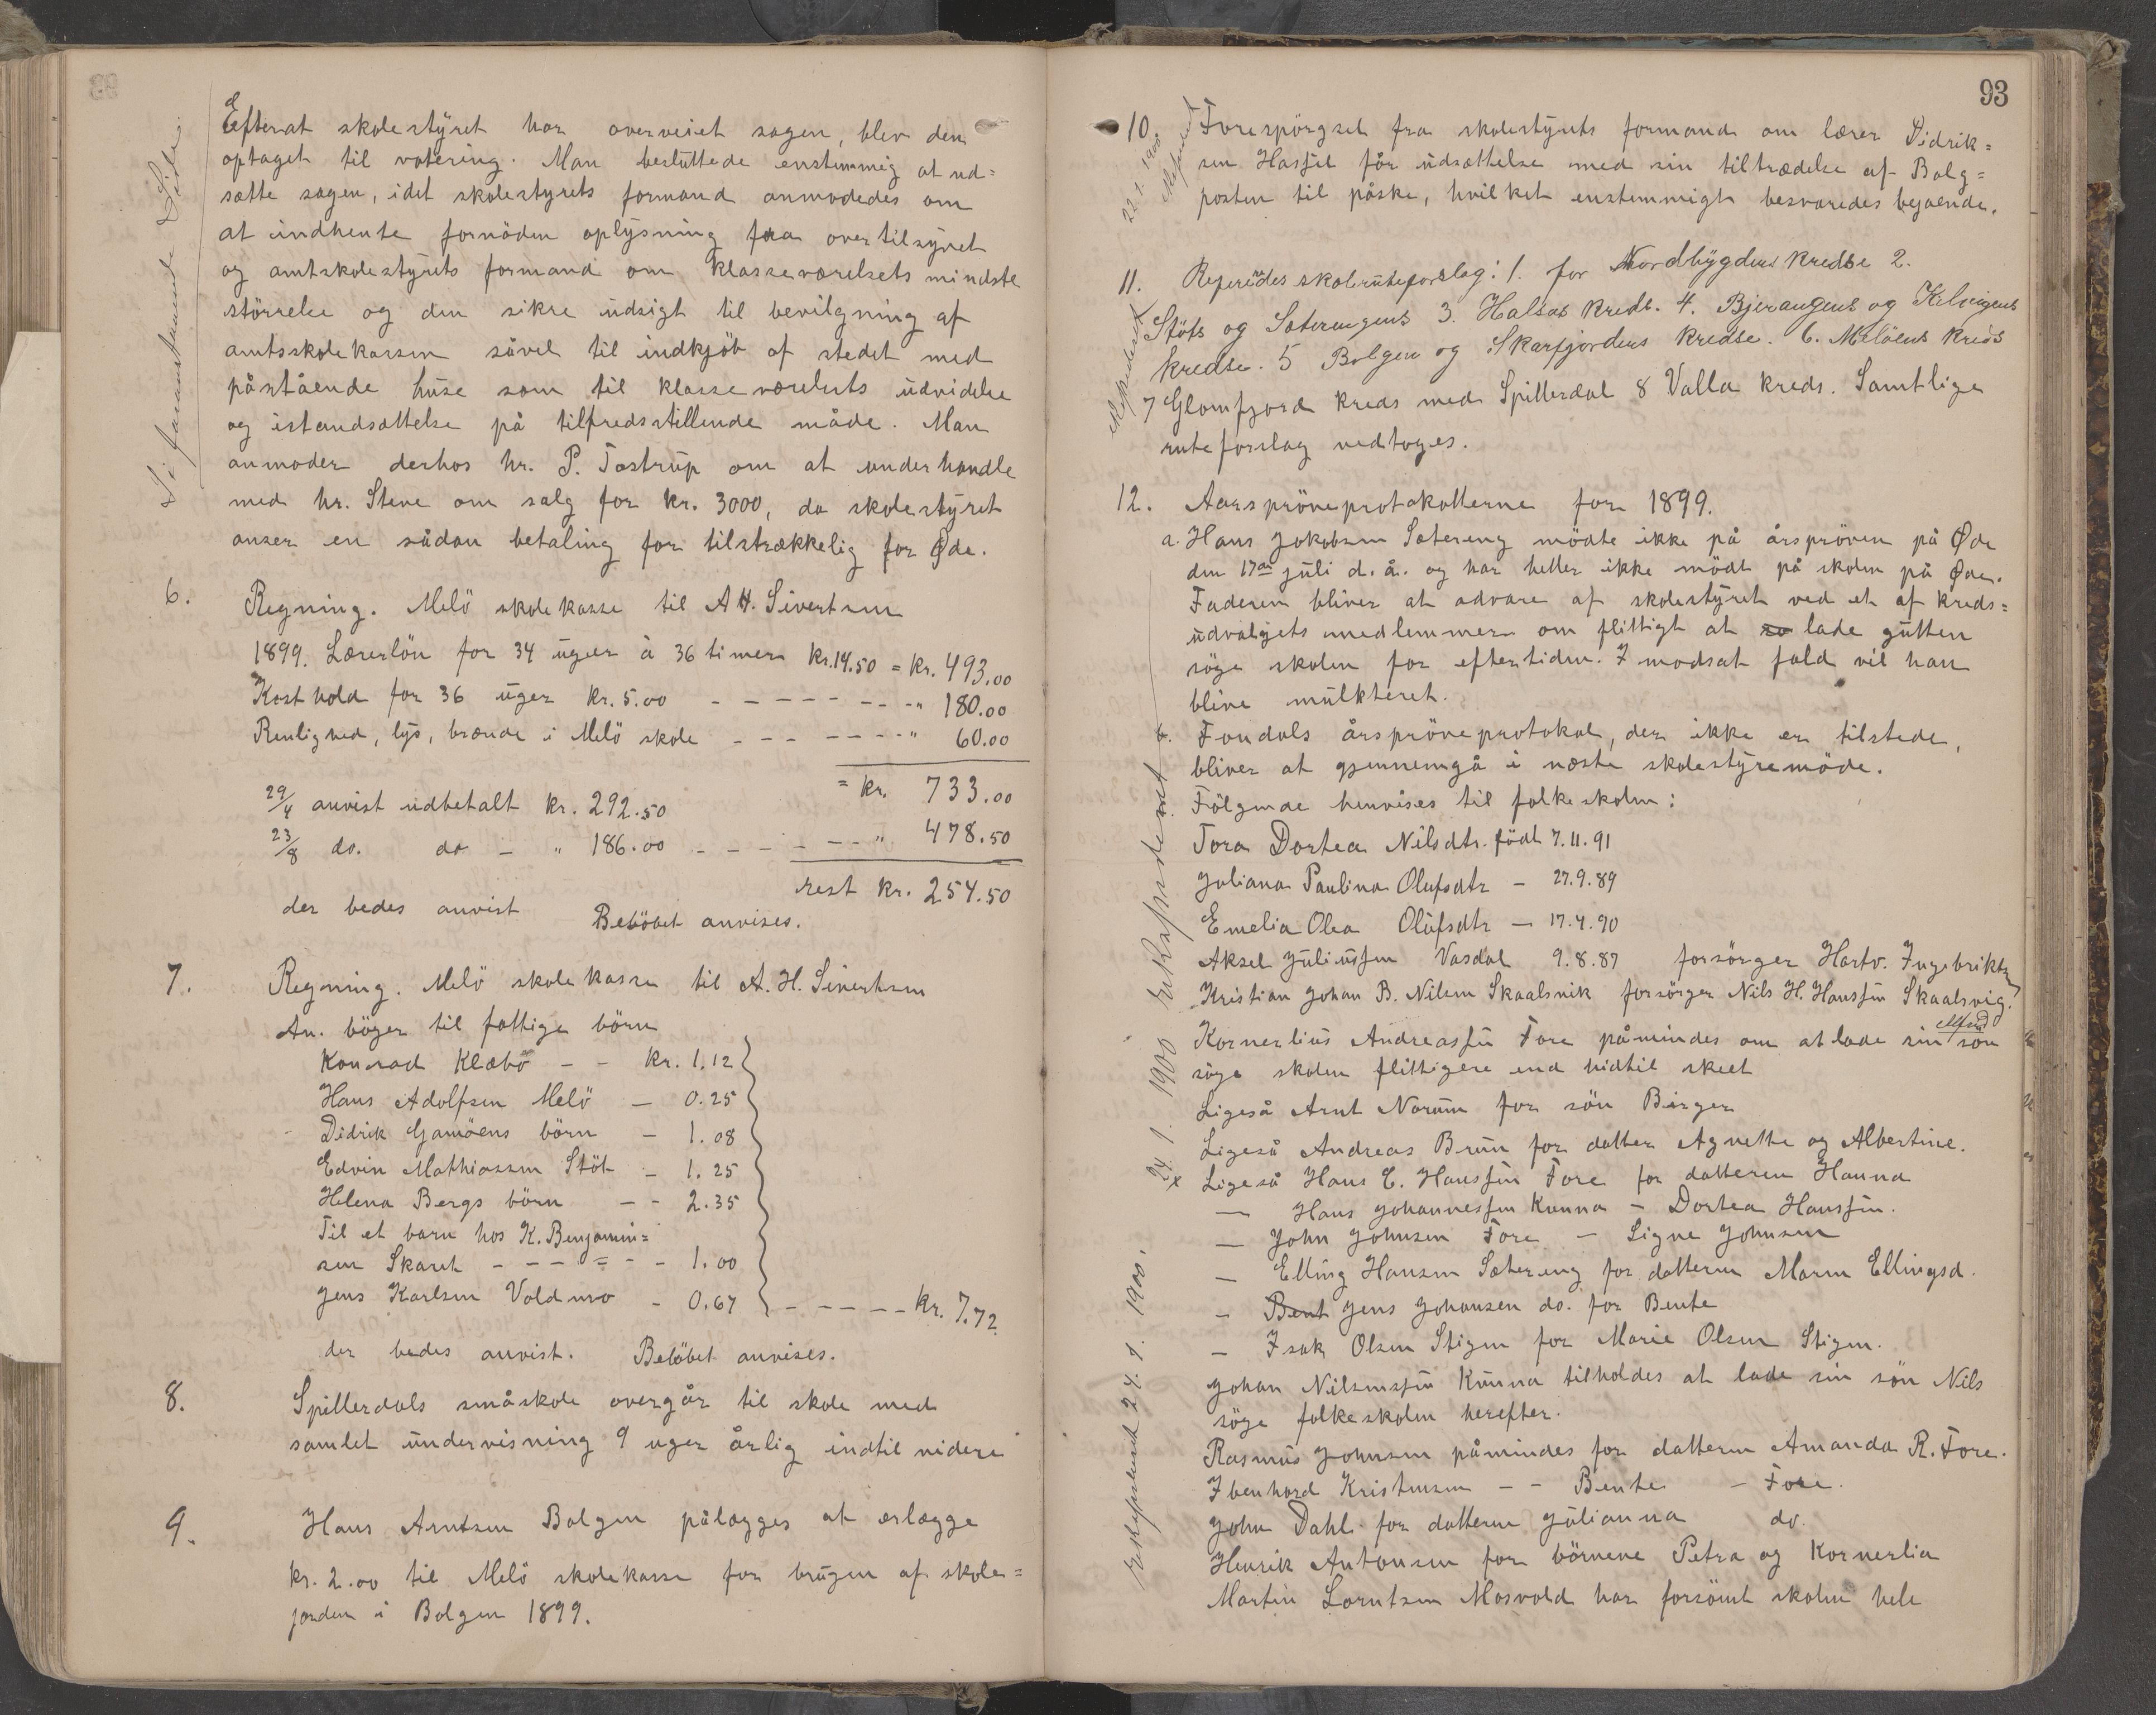 Se foranstaaende Side.
Efterat skolestyret har overveiet sagen, blev den
optaget til votering. Man besluttede enstemmig at ud=
sætte sagen, idet skolestyrets formand anmodedes om
at indhente fornöden oplysning fra overtilsynet
og amtskolestyrets formand om klasseværelsets mindste
störrelse og den sikre udsigt til bevilgning af
amtsskolekassen såvel til indkjöb af stedet med
påstående huse som til klasseværelsets udvidelse
og istandsættelse på tilfredsstillende måde. Man
anmoder derhos hr. P. Tostrup om at underhandle
med hr. Stene om salg for kr. 3000, da skolestyret
anser en sådan betaling for tilstrækkelig for Øde.
6. Regning. Melö skolekasse til A H. Sivertsen
1899. Lærerlön for 34 uger à 36 timer kr. 14.50 = kr. 493.00
Kosthold for 36 uger kr. 5.00 - - - - - - - - " 180.00
Renlighed, lys, brænde i Melö skole - - - - - - - " 60.00
= kr. 733.00
29/4 anvist udbetalt kr. 292.50
23/8 do. do - " 186.00 - - - - - - " 478.50
rest kr. 254.50
der bedes anvist Belöbet anvises.
7. Regning. Melö skolekasse til A. H. Sivertsen
An. böger til fattige börn
Konrad Klæbö - - kr. 1.12
Hans Adolfsen Melö - 0.25
Didrik Gamöens börn - 1.08
Edvin Mathiassen Stöt - 1.25
Helena Bergs börn - - 2.35
Til et barn hos K. Benjamin=
sen Skaret - - - - - - 1.00
Jens Karlsen Voldmo - 0.67 - - - - - kr. 7.72
der bedes anvist. Belöbet anvises.
8. Spillerdals småskole overgår til skole med
samlet undervisning 9 uger årlig indtil videre
9. Hans Arntsen Bolgen pålægges at erlægge
kr. 2.00 til Melö skolekasse for brugen af skole=
jorden i Bolgen 1899.
93
22.1.1900
10. Forespörgsel fra skolestyrets formand om lærer Didrik=
sen Hasfjel får udsættelse med sin tiltrædelse af Bolg=
posten til påske, hvilket enstemmigt besvaredes bejaende.
Ekspederet
11. Refereredes skoleruteforslag: 1. for Nordbygdens kredse 2.
Stöts og Sæterengens 3. Halsas kreds. 4. Bjerangens og Kilvigens
kredse. 5 Bolgen og Skarfjordens kredse. 6. Melöens kreds
7 Glomfjord kreds med Spillerdal 8 Valla kreds. Samtlige
ruteforslag vedtoges.
12. Aarspröveprotokollerne for 1899.
a. Hans Jakobsen Sætereng mödte ikke på årspröven på Øde
den 17de juli d. å. og har heller ikke mödt på skolen på Øde.
Faderen bliver at advare af skolestyret ved et af kreds=
udvalgets medlemmer om flittigt at lade gutten
söge skolen for eftertiden. I modsat fald vil han
blive mulkteret.
b. Fondals årspröveprotokol, der ikke er tilstede,
bliver at gjennemgå i næste skolestyremöde.
Fölgende henvises til folkeskolen:
Tora Dortea Nilsdtr. födt 7.11.91
Juliana Paulina Olufsdtr - 27.9.89
Emelia Olea Olufsdtr - 17.4.90
Aksel Juliussen Vasdal 9.8.87 forsörger Hartv. Ingebrikts
Kristian Johan B. Nilsen Skaalsvik forsörger Nils H. Hanssen Skaalsvig.
Kornerlius Andreassen Fore påmindes om at lade sin Alfred sön
söge skolen flittigere end hidtil skeet
Ligeså Arnt Norum for sön Birger
Ligeså Andreas Brun for datter Agnethe og Albertine.
x Ligeså Hans E. Hanssen Fore for datteren Hanna
— Hans Johannessen Kunna - Dortea Hanssen.
— John Johnsen Fore - Signe Johnsen
— Elling Hansen Sætereng for datteren Maren Ellingsd.
- Bent Jens Johansen do. for Bente
- Isak Olsen Stigen for Marie Olsen Stigen.
Johan Nilsenssen Kunna tilholdes at lade sin sön Nils
söge folkeskolen herefter.
Rasmus Johnsen påmindes for datteren Amanda R. Fore.
Ibenhard Kristensen - - Bente - Fore.
John Dahl for datteren Julianna do.
Henrik Antonsen for börnene Petra og Kornerlia
Martin Lorntsen Mosvold har forsömt skolen hele
24. 1. 1900 Ekspederet
Ekspederet 24. 1. 1900.